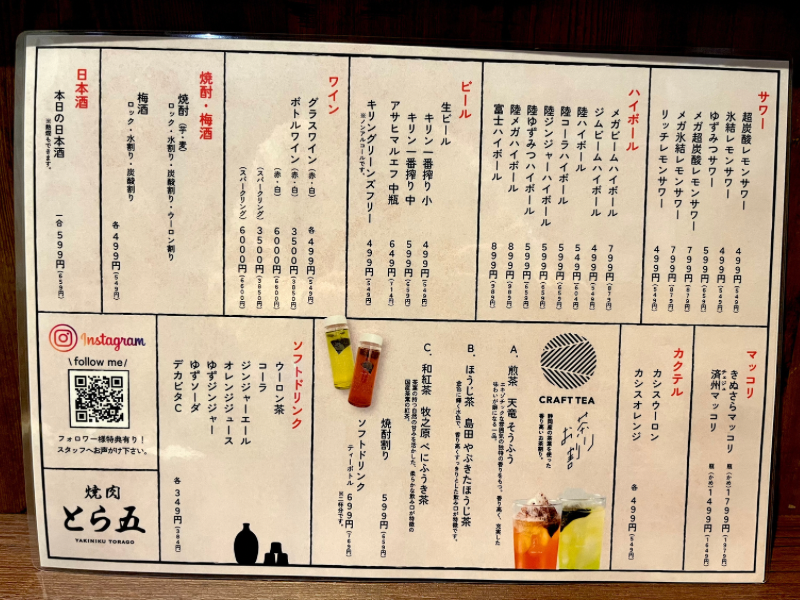 サワー
超炭酸レモンサワー 499円(549円)
氷結レモンサワー 499円(549円)
ゆずみつサワー 599円(659円)
メガ超炭酸レモンサワー 799円(879円)
メガ氷結レモンサワー 799円(879円)
リッチレモンサワー 499円(549円)
ハイボール
メガビームハイボール 799円(879円)
ジムビームハイボール 499円(549円)
陸ハイボール 549円(604円)
陸コーラハイボール 599円(659円)
陸ジンジャーハイボール 599円(659円)
陸ゆずみつハイボール 599円(659円)
陸メガハイボール 899円(989円)
富士ハイボール 899円(989円)
ビール
生ビール
キリン一番搾り 小 499円(549円)
キリン一番搾り 中 599円(659円)
アサヒマルエフ 中瓶 649円(714円)
キリングリーンズフリー 499円(549円)
※ノンアルコールです。
ワイン
グラスワイン(赤・白) 各499円(549円)
ボトルワイン(赤・白) 3500円(3850円)
(赤・白) 6000円(6600円)
(スパークリング) 3500円(3850円)
(スパークリング) 6000円(6600円)
焼酎・梅酒
焼酎(芋・麦)
ロック・水割り・炭酸割り・ウーロン割り
梅酒
ロック・水割り・炭酸割り
各499円(549円)
日本酒
本日の日本酒 一合 599円(659円)
※熱燗もできます。
マッコリ
きぬさらマッコリ 瓶(かめ)1799円(1979円)
チェジュ
済州マッコリ 瓶(かめ)1499円(1649円)
カクテル
カシスウーロン
カシスオレンジ
各499円(549円)
CRAFT TEA
茶りお割
静岡産の茶葉を使った
香り高いお茶割り。
A. 煎茶 天竜 そうふう
エキゾチックな雰囲気の独特の香りをもつ。香り高く、充実した
味わいが癖になる一品。
B. ほうじ茶 島田 やぶきたほうじ茶
金色に輝く水色で、香り高くすっきりとした飲み口が特徴です。
C. 和紅茶 牧之原 べにふうき茶
茶葉の持つ自然の甘みを活かした、柔らかな飲み口が特徴の
国産茶葉の紅茶。
焼酎割り 599円(659円)
ソフトドリンク
ティーボトル 699円(769円)
※二杯分です。
ソフトドリンク
ウーロン茶
コーラ
ジンジャーエール
オレンジジュース
ゆずジンジャー
ゆずソーダ
デカビタC
各349円(384円)
Instagram
\ follow me /
フォロワー様特典有り!
スタッフへお声がけ下さい。
焼肉
とら五
YAKINIKU TORAGO